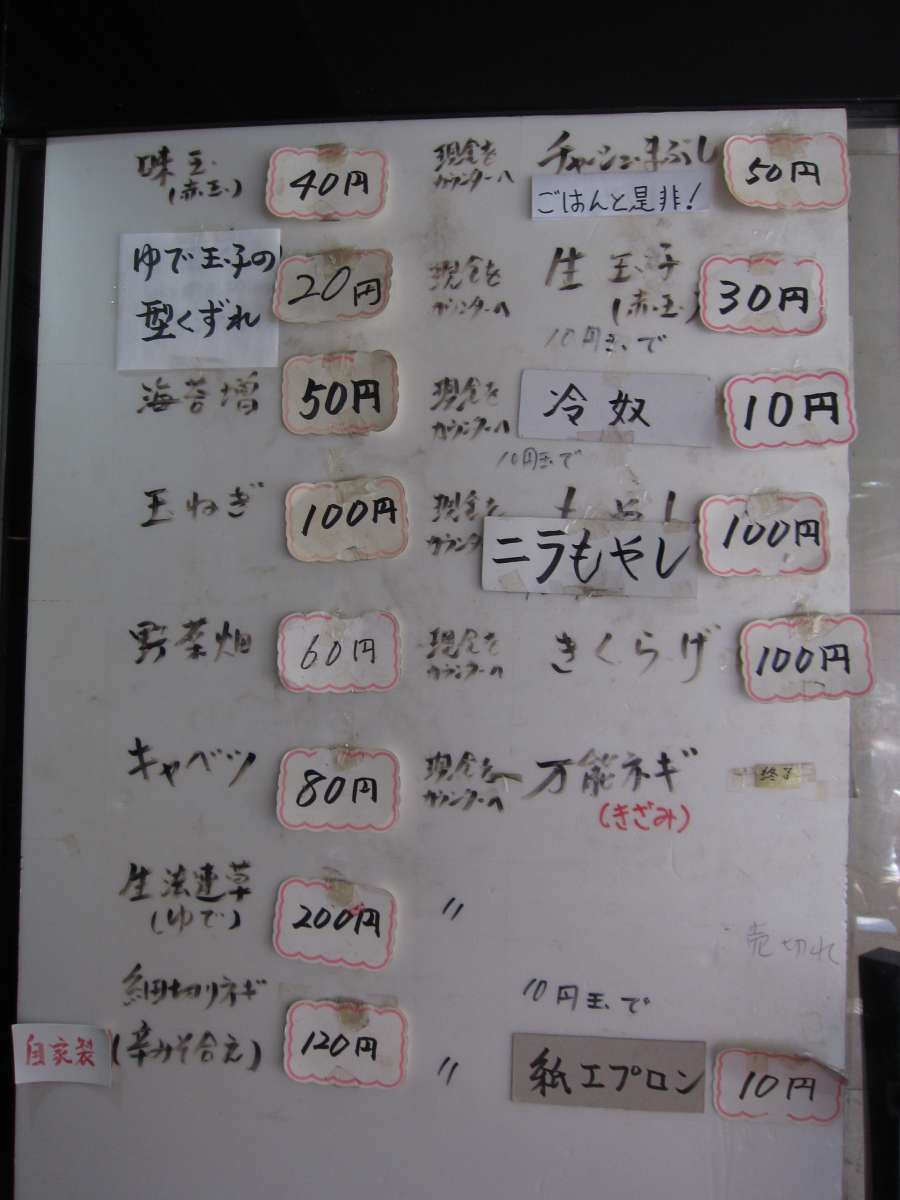 味玉
(赤玉)
40円
現金を
カウンターへ
ゆで玉子の
型くずれ
20円
現金を
カウンターへ
海苔増
50円
現金を
カウンターへ
玉ねぎ
100円
現金を
カウンター
野菜畑
60円
現金を
カウンターへ
キャベツ
80円
現金を
カウンターへ
生法連草
(ゆで)
200円
〃
細切りネギ
自家製
(辛みそ合え)
120円
〃
チャーシューまぶし
ごはんと是非!
50円
生玉子
(赤玉)
30円
10円玉で
冷奴
10円
10円玉で
もやし
ニラもやし
100円
きくらげ
100円
万能ネギ
(きざみ)
終了
売切れ
10円玉で
紙エプロン
10円